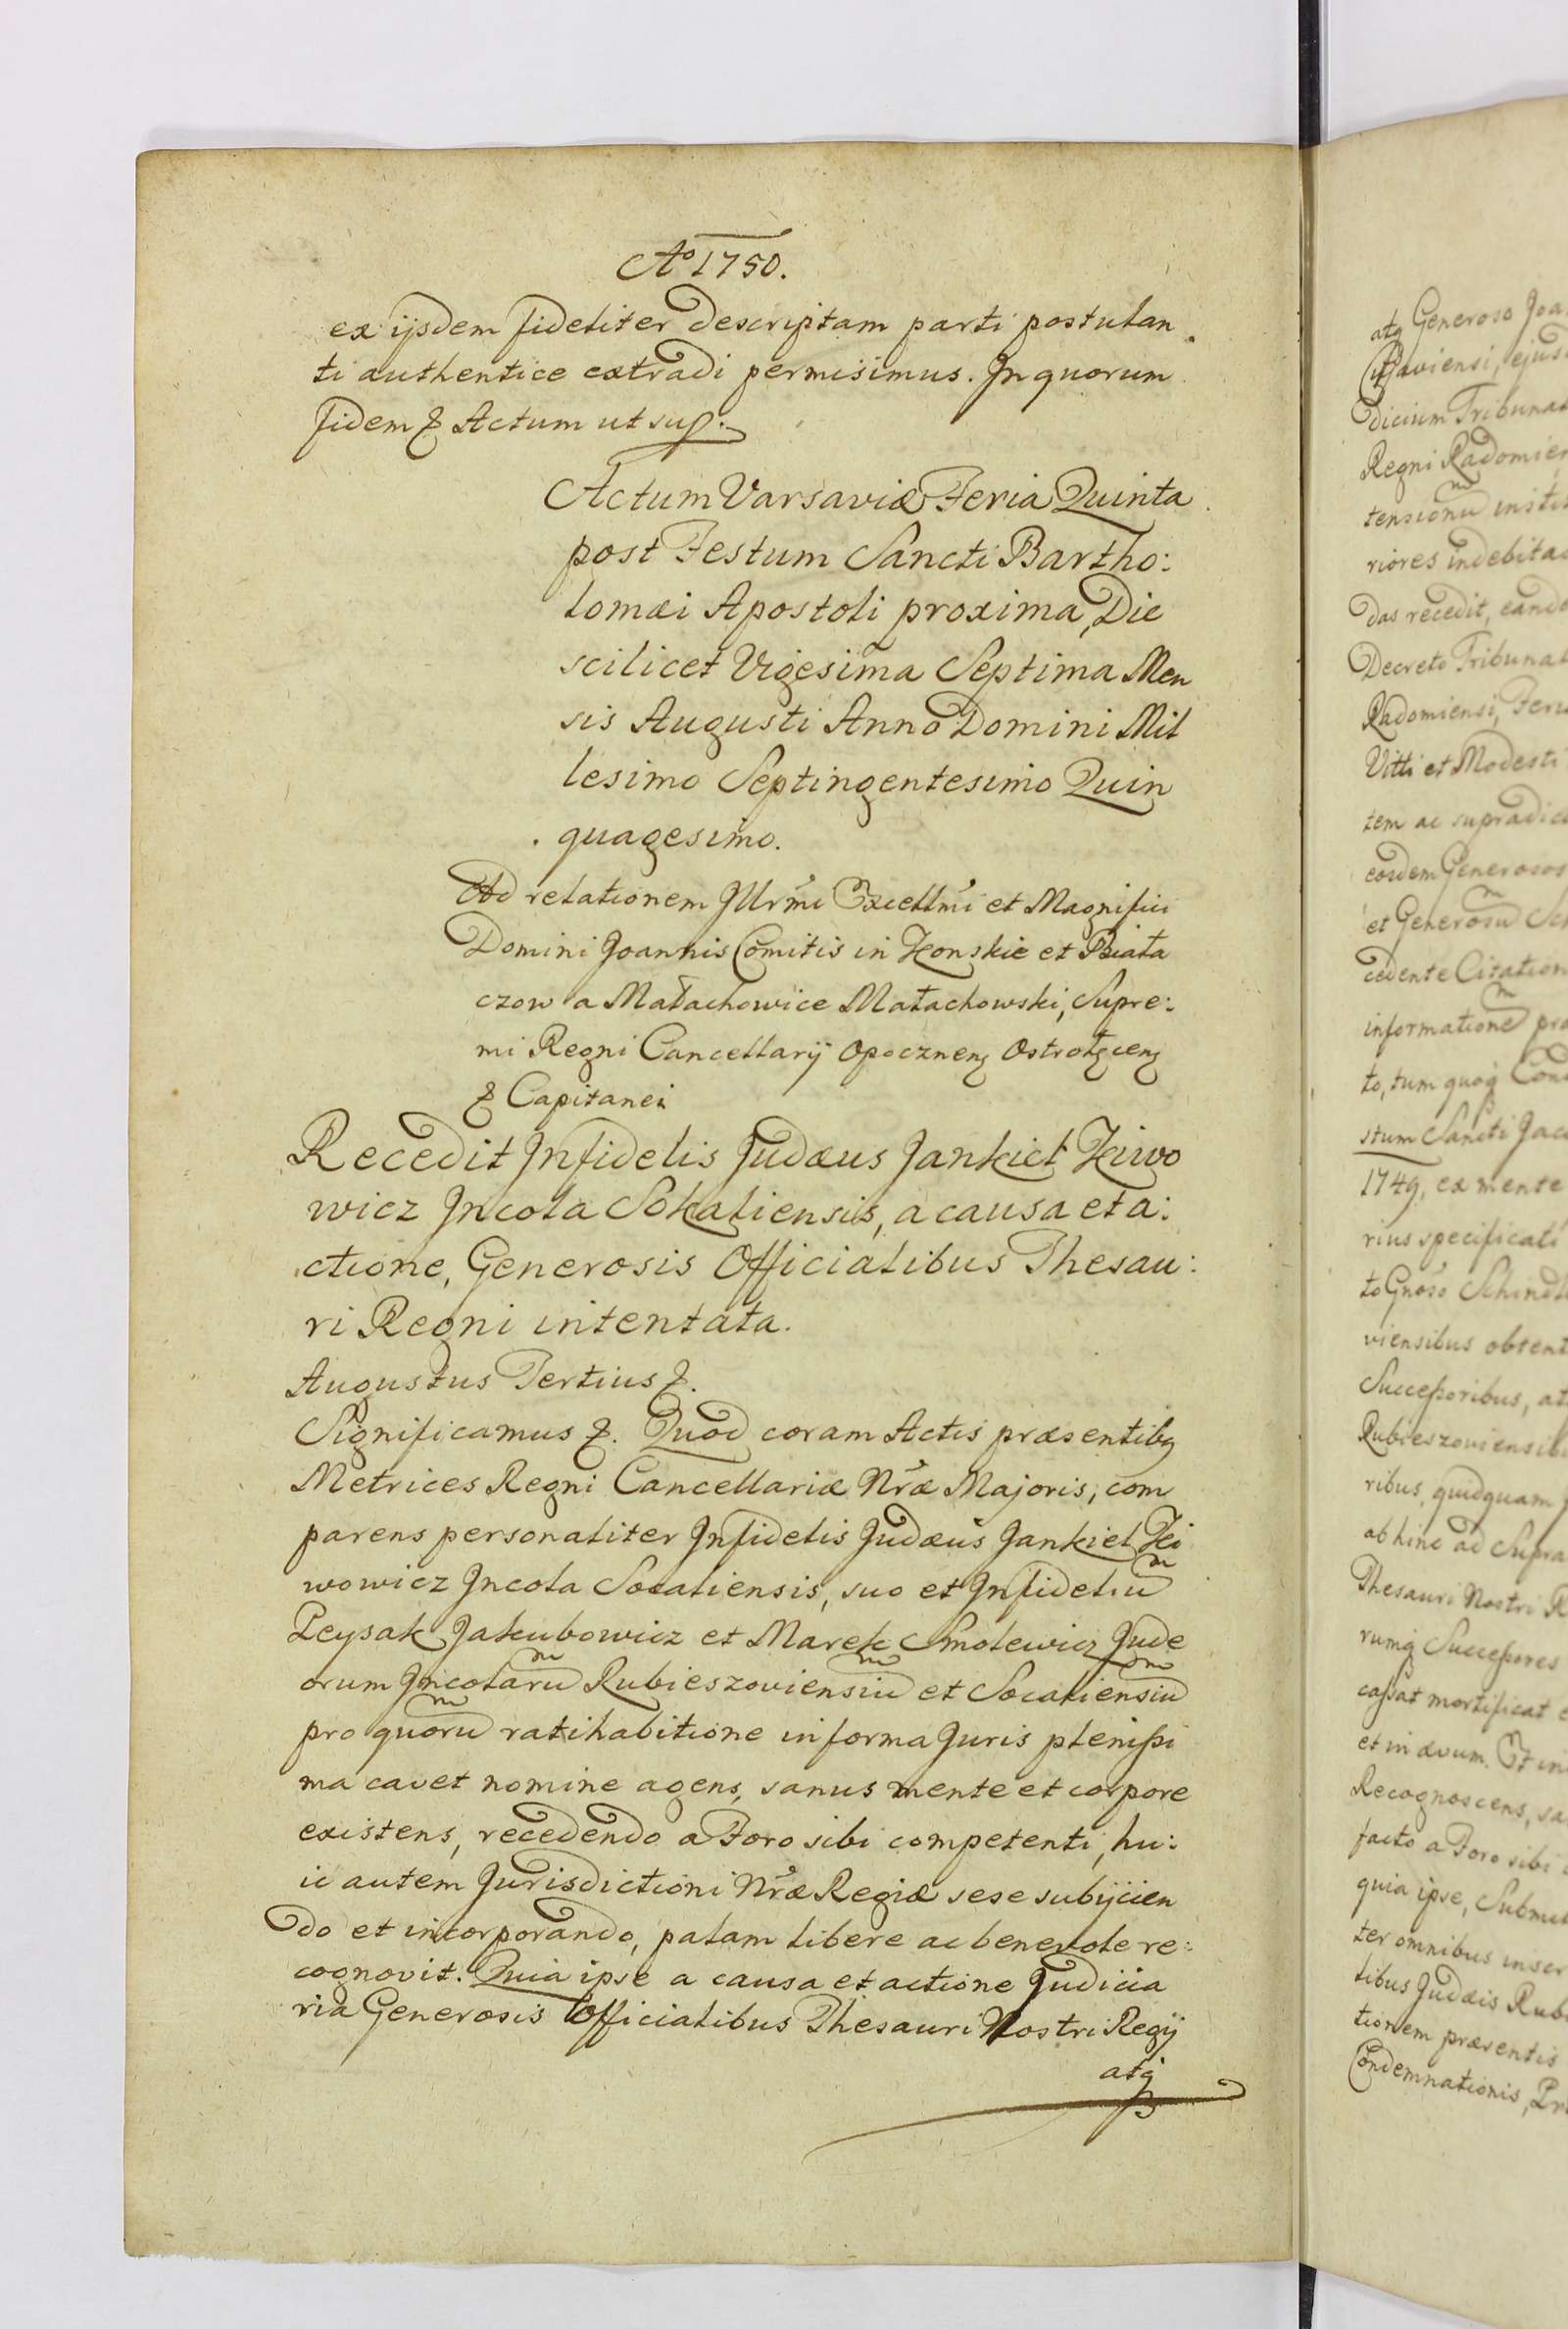 Aº 1750.
ex ijsdem fideliter descriptam parti postulan
ti authentice extradi permisimus. Jn quorum
fidem & Actum ut sup.
Actum Varsaviæ Feria Quinta
post Festum Sancti Bartho:
lomæi Apostoli proxima, Die
scilicet Vigesima Septima Men
sis Augusti Anno Domini Mil
lesimo Septingentesimo Quin
quagesimo.
Ad relationem Jllrmi Excellmi et Magnifici
Domini Joannis Comitis in Konskie et Biała
czow a Małachowice Małachowski, Supre:
mi Regni Cancellarij Opocznenꝫ Ostrołꝫcenꝫ
& Capitanei
Recedit Jnfidelis Judæus Jankiel Kiwo
wicz Jncola Sokaliensis, a causa et a:
ctione, Generosis Officialibus Thesau:
ri Regni intentata.
Augustus Tertius &.
Significamus &. Quod coram Actis præsentibꝫ
Metrices Regni Cancellariæ Nræ Majoris, com
parens personaliter Jnfidelis Judæus Jankiel Ki
wowicz Jncola Socaliensis, suo et Jnfideliũ
Peysak Jakubowicz et Marek Smolewicz Jude
orum Jncolarũ Rubieszoviensiũ et Socaliensiũ
pro quorũ ratihabitione in forma Juris plenissi
ma cavet nomine agens, sanus mente et corpore
existens, recedendo a Foro sibi competenti, hu:
ic autem Jurisdictioni Nræ Regiæ sese subijcien
do et incorporando, palam libere ac benevole re:
cognovit. Quia ipse a causa et actione Judicia
ria Generosis Officialibus Thesauri Nostri Regij
atq
atq Generoso Joa
Cujaviensi, ejus
dicium Tribuna
Regni Radomien
tensionũ insti
riores indebita
das recedit, eand
Decreto Tribunal
Radomiensi, Feri
Vitti et Modesti
tem ac supradic
eosdem Generosos
et Generosũ
cedente Citation
informationẽ pr
to, tum quoq Con
stum Sancti Jac
1749, ex mente
rius specificati
to Gnoso
viensibus obtent
Successoribus, at
Rubieszoviensib
ribus, quidquam
ab hinc ad Supra
Thesauri Nostri R
rumq Successores
cassat mortificat e
et in ævum. Et in
Recognoscens, sa
facto a Foro sibi
quia ipse, Submit
ter omnibus inscr
tibus Judæis Rub
tionem præsentis
Condemnationis, Pr